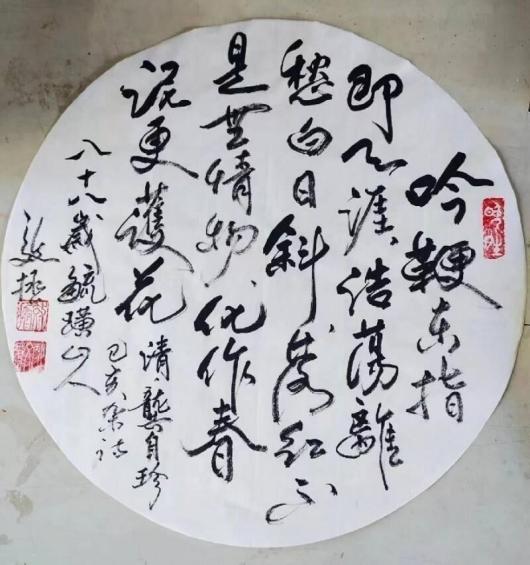 吟鞭东指
即天涯浩荡離
愁白日斜落红不
是無情物化作春
泥更護花
清龔自珍
己亥杂诗
八十八歲毓璜山人